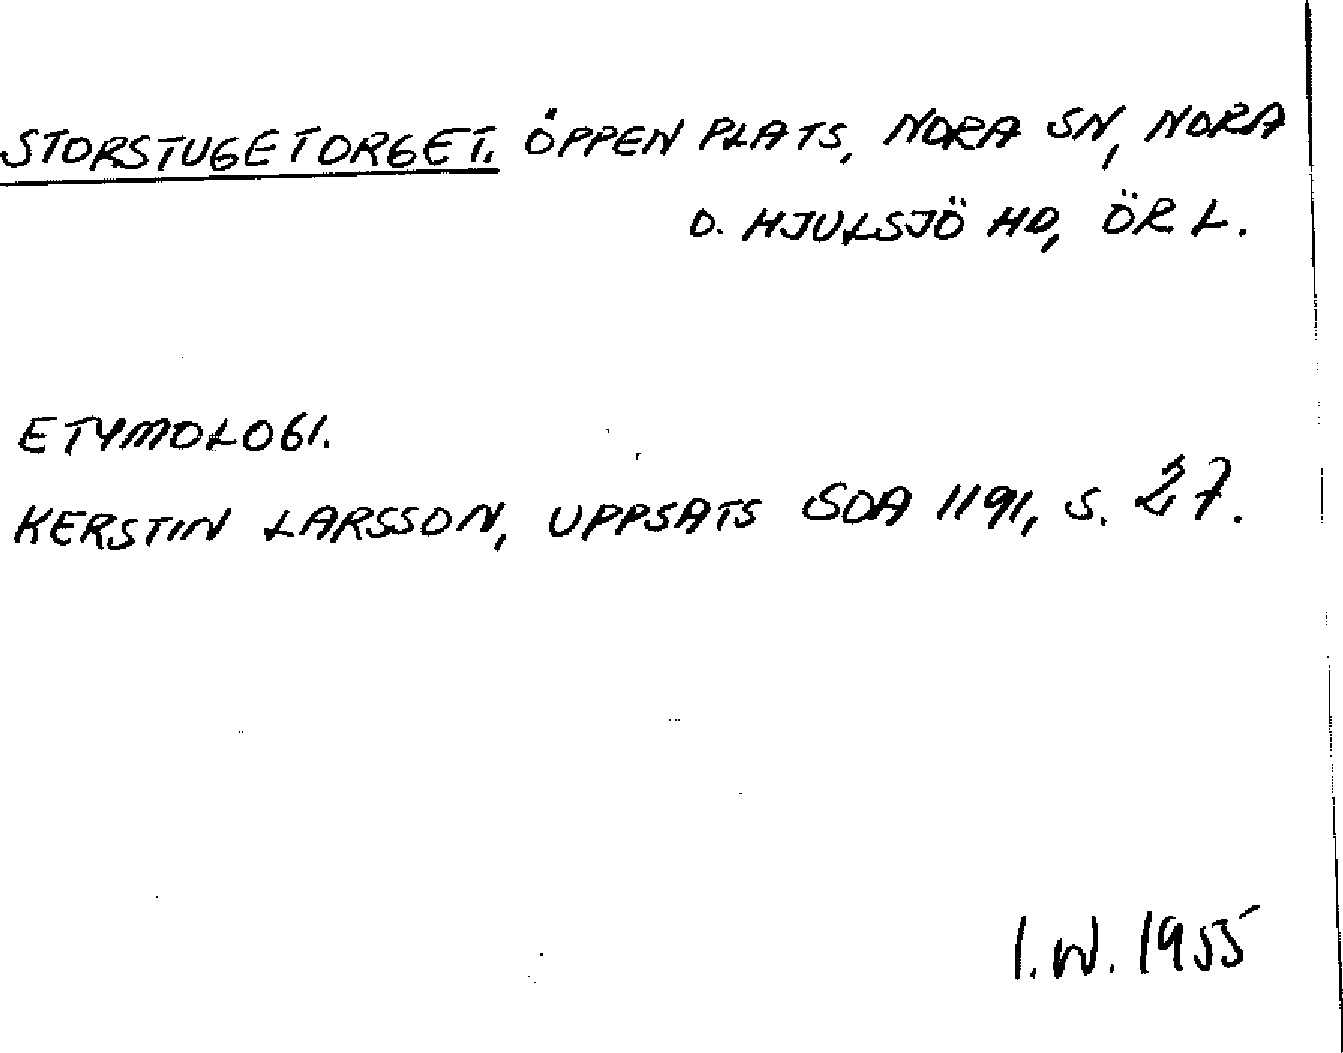 STORSTUGETORGET. ÖPPEN PLATS, NORA SN, NORA
O. HJULSJÖ HD, ÖR L.
ETYMOLOGI.
KERSTIN LARSSON, UPPSATS SOA 1191, S. 27.
I.W. 1955